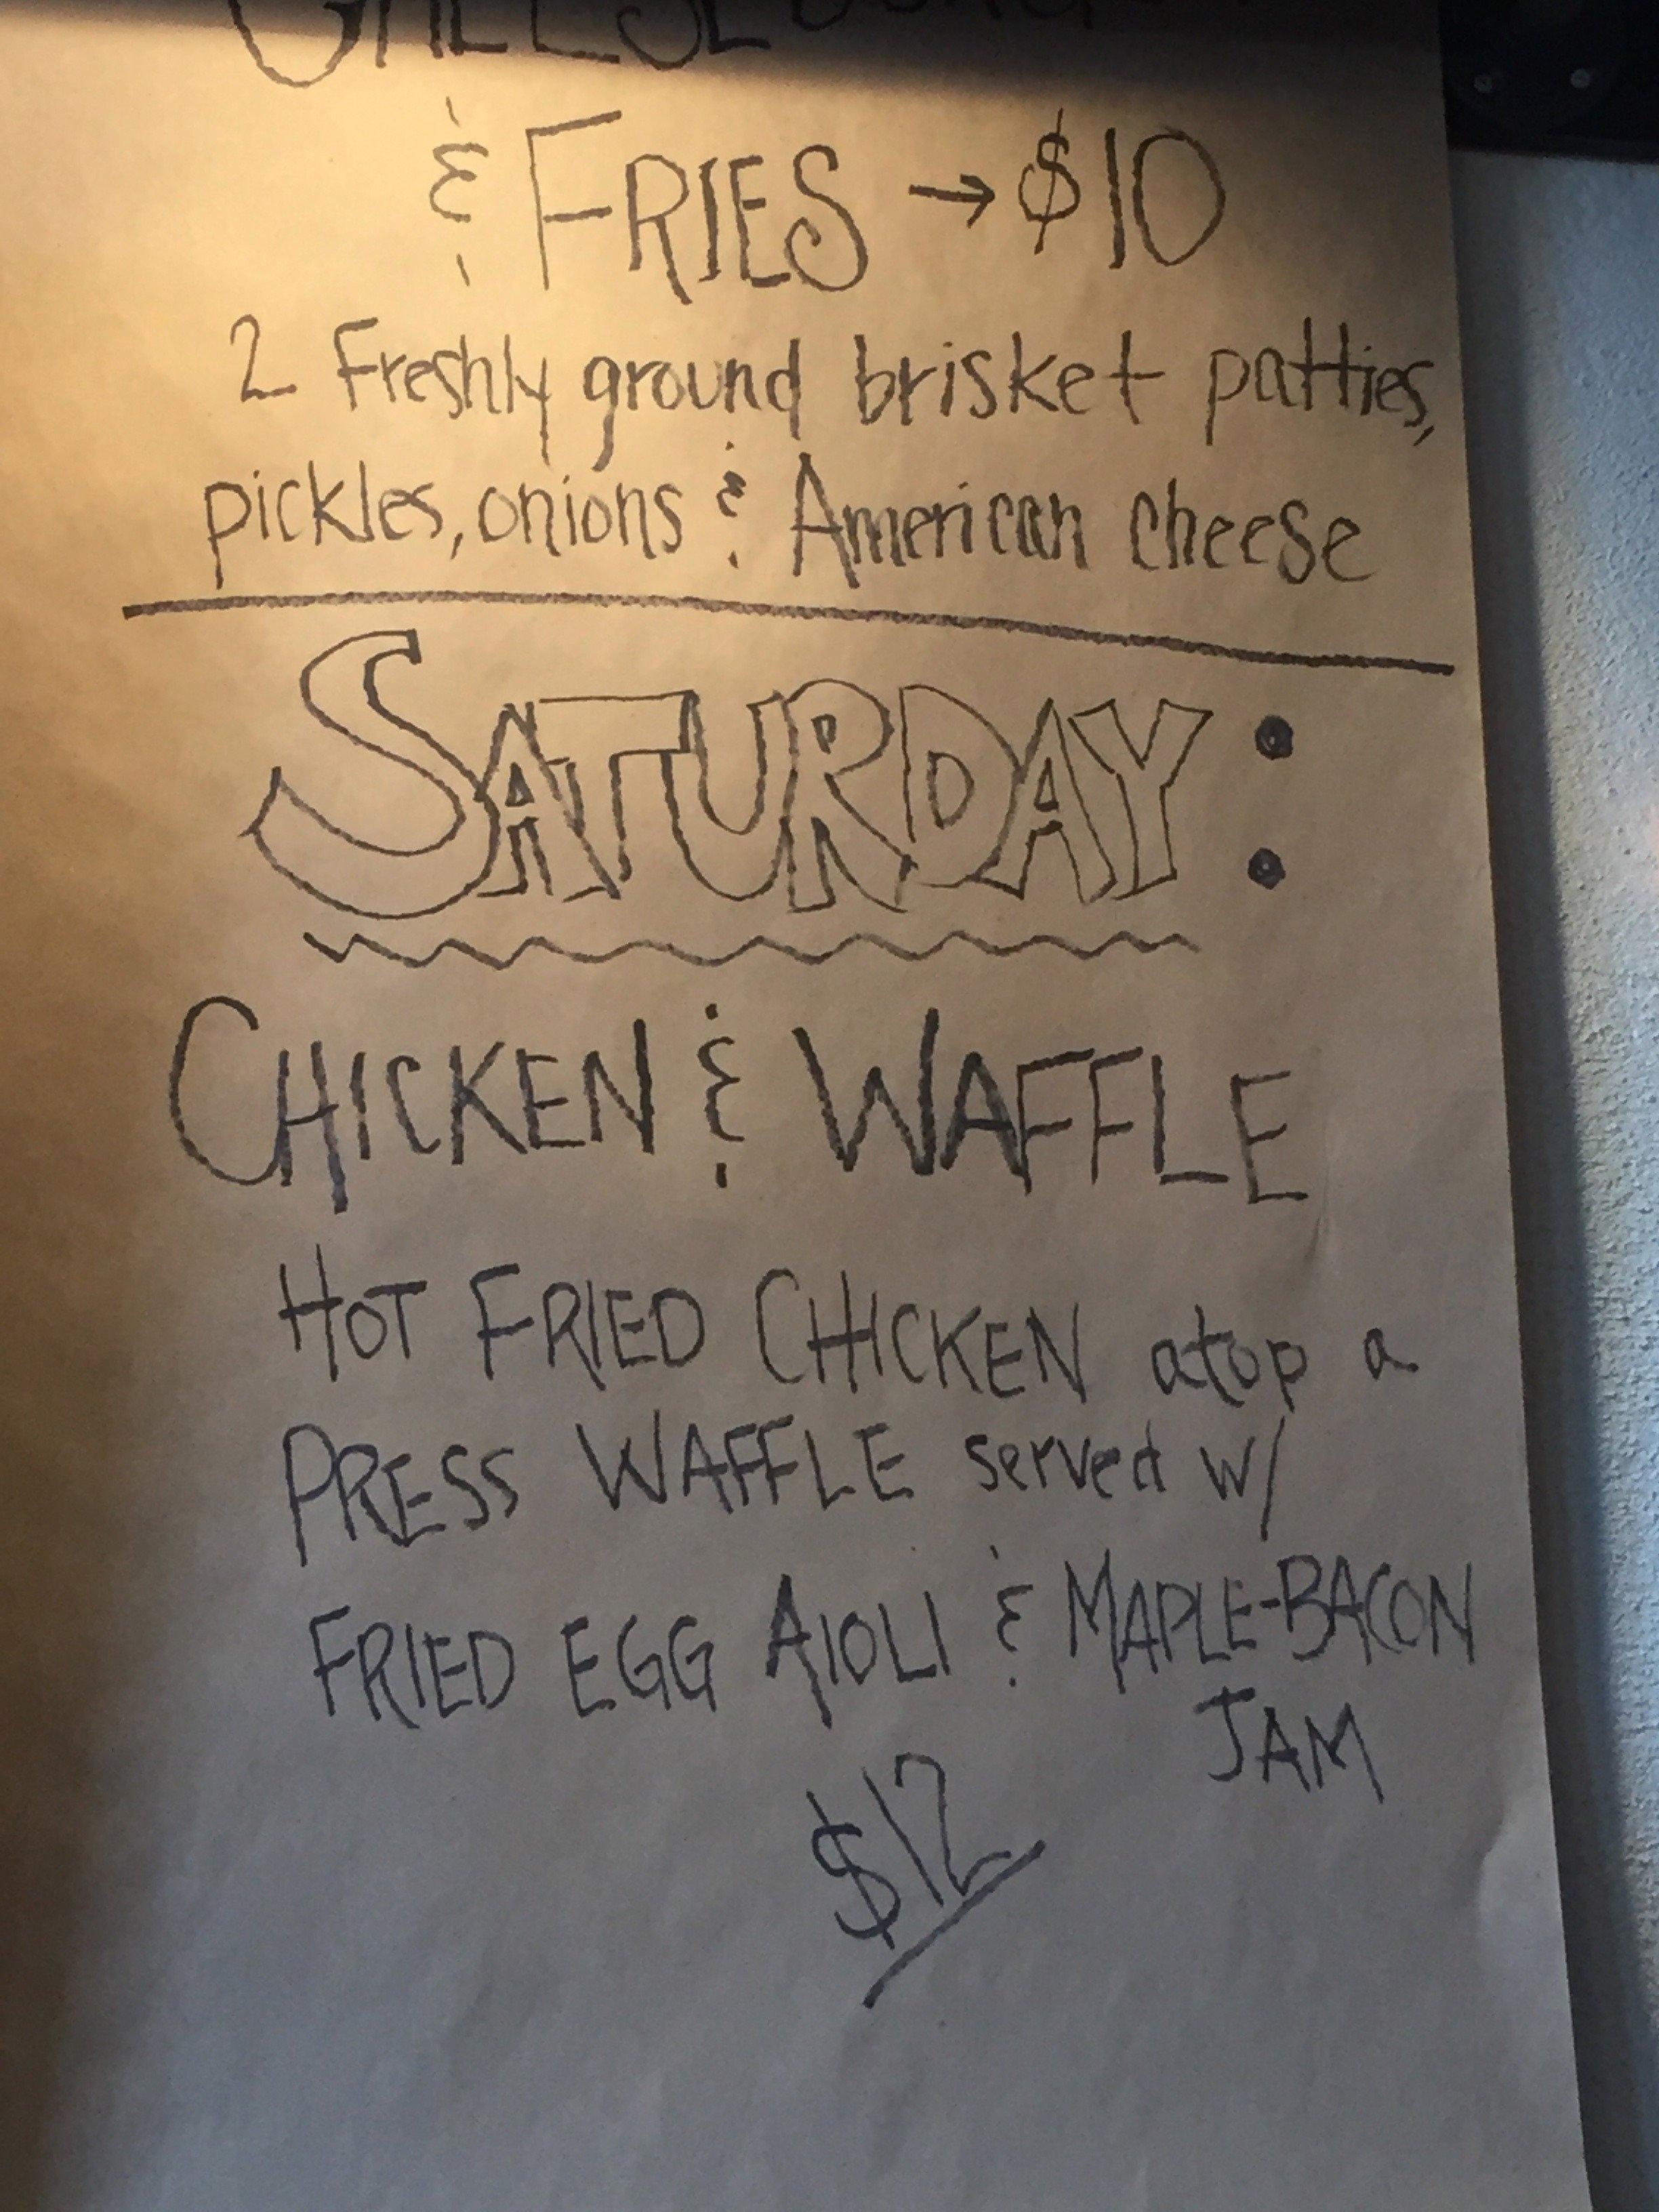 & FRIES → $10
2 Freshly ground brisket patties,
pickles, onions & American cheese
SATURDAY:
CHICKEN & WAFFLE
HOT FRIED CHICKEN atop a
PRESS WAFFLE served w/
FRIED EGG AIOLI & MAPLE-BACON
JAM
$12